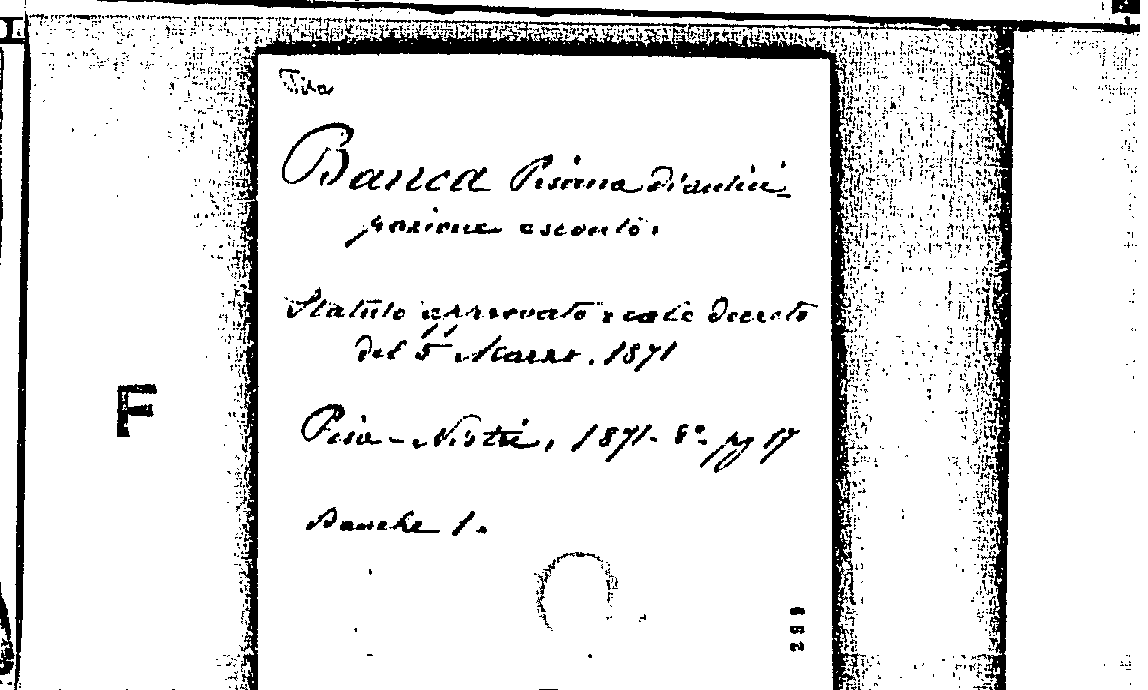 Pisa
Banca Pisana di antici-
pazione e sconto.
Statuto approvato reale decreto
del 5 Marzo. 1871
F
Pisa - Nistri, 1871. 8º pg 17
Banche 1.